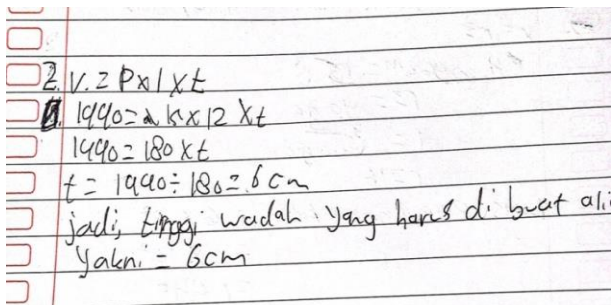 2. V. = P x l x t
1440 = 15 x 12 x t
1440 = 180 x t
t = 1440 ÷ 180 = 6 cm
jadi, tinggi wadah yang harus di buat ali
Yakni = 6cm